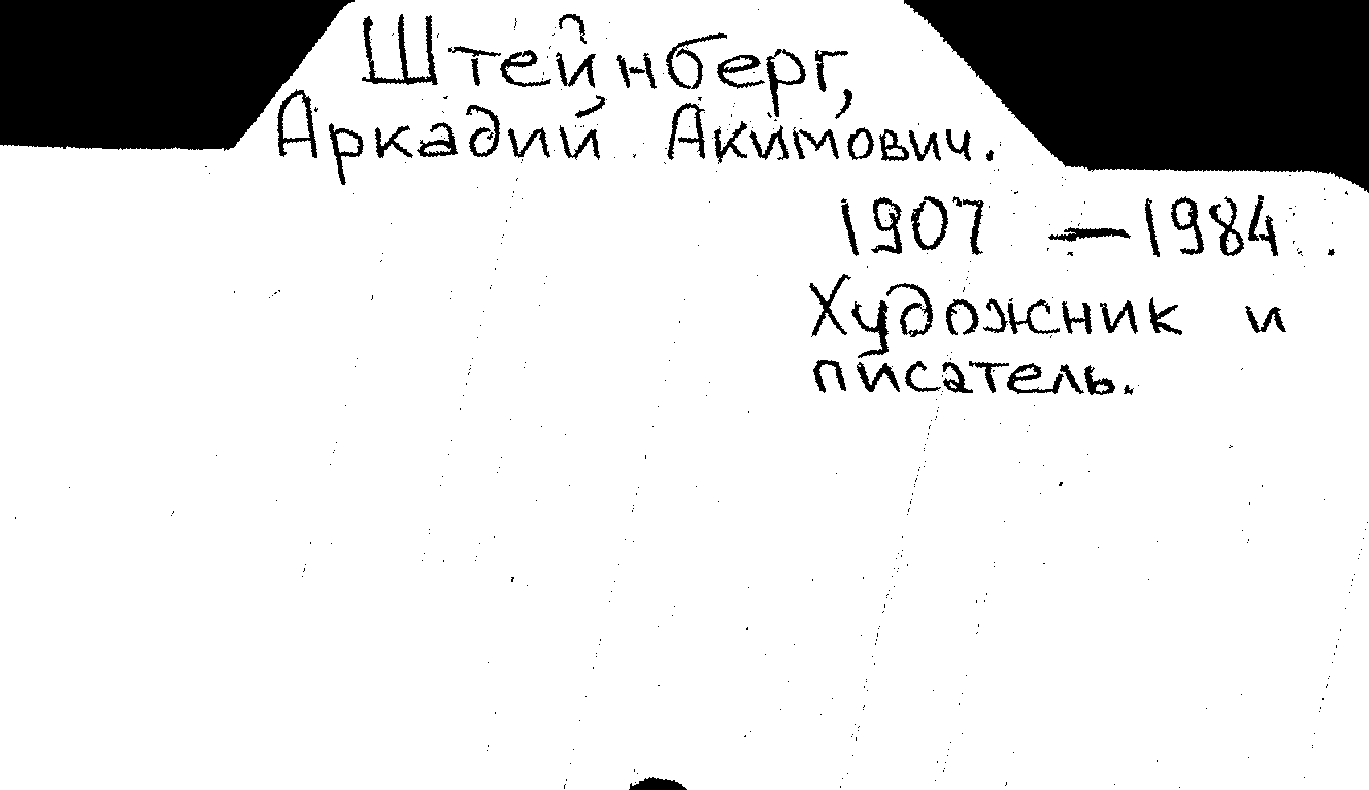 Штейнберг,
Аркадий Акимович.
1907 — 1984.
Художник и
писатель.